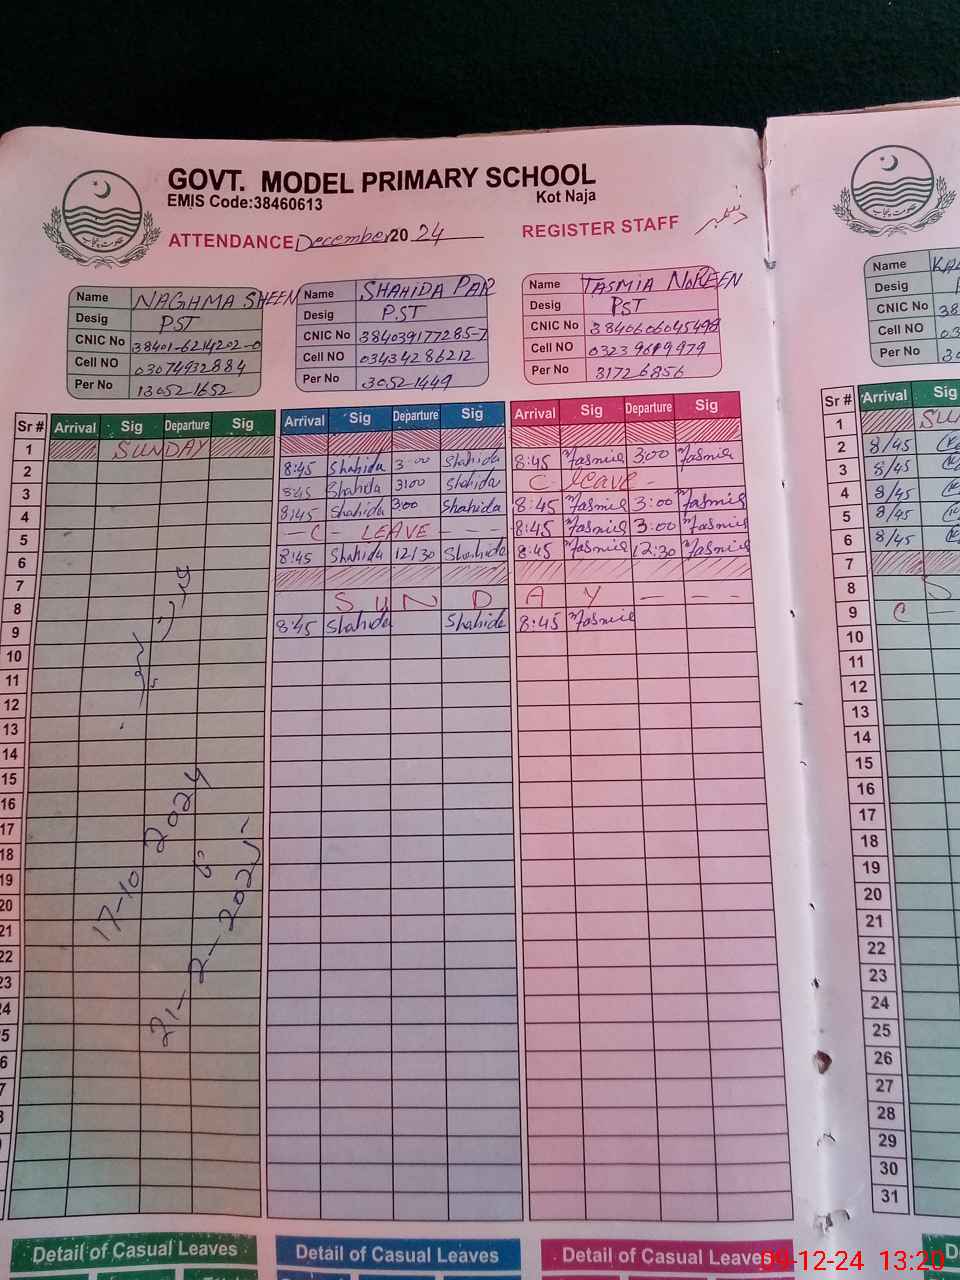 GOVT. MODEL PRIMARY SCHOOL
EMIS Code:38460613
Kot Naja
ATTENDANCE December 20 24
REGISTER STAFF دسمبر
Name NAGHMA SHEEN
Desig PST
CNIC No 38401-6214202-0
Cell NO 03074932884
Per No 130521652
Name SHAHIDA PAR
Desig PST
CNIC No 384039177285-7
Cell NO 03434286212
Per No 30521449
Name TASMIA NOREEN
Desig PST
CNIC No
Cell NO
Per No 31726856
Name
Desig
CNIC No 38
Cell NO 03
Per No
Sr # Arrival Sig Departure Sig Arrival Sig Departure Sig Arrival Sig Departure Sig
1 SUNDAY
2 8:45 Shahida 3:00 Shahida 8:45 Tasmia 3:00 Tasmia
3 8:45 Shahida 3:00 Shahida C - leave -
4 8:45 Shahida 3:00 Shahida 8:45 Tasmia 3:00 Tasmia
5 - C - LEAVE - - - 8:45 Tasmia 3:00 Tasmia
6 8:45 Shahida 12:30 Shahida 8:45 Tasmia 12:30 Tasmia
7
8 S U N D A Y - - -
9 8:45 Shahida Shahida 8:45 Tasmia
10
11
12
13
14
15
16
17
18
19
20
21
22
23
24
25
17-10 2024
21-2-202
Sr # Arrival Sig
1 SUN
2 8/45
3 8/45
4 8/45
5 8/45
6 8/45
7
8 S
9 C -
10
11
12
13
14
15
16
17
18
19
20
21
22
23
24
25
26
27
28
29
30
31
Detail of Casual Leaves
Detail of Casual Leaves
Detail of Casual Leaves
D
09-12-24 13:20